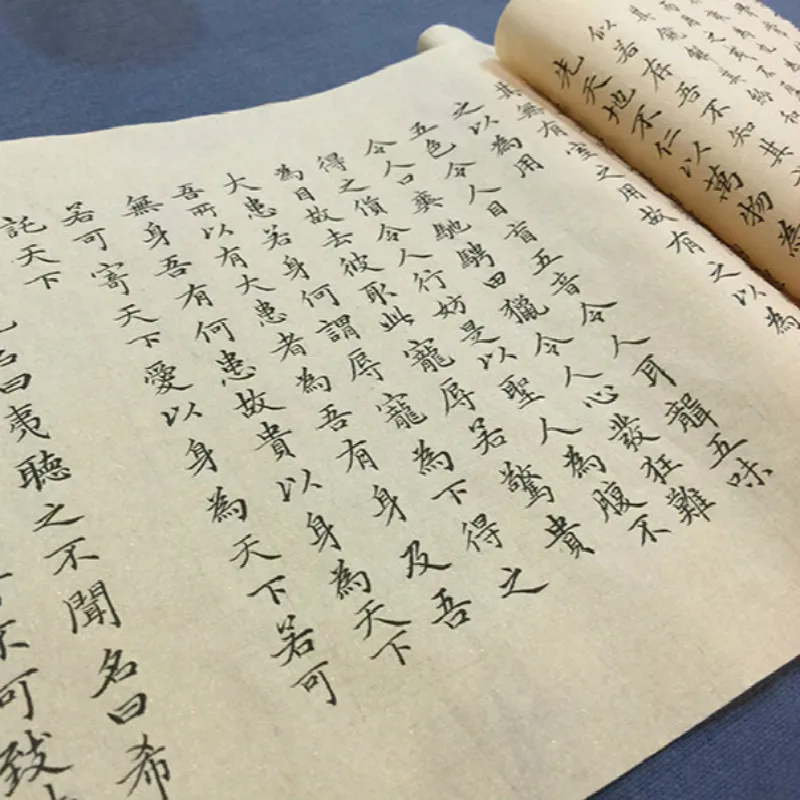 似若存吾不知其
先天地不仁以萬物為
其無有室之用故有之以為
之以為用
五色令人目盲五音令人耳聾五味
令人口爽馳騁田獵令人心發狂難
得之貨令人行妨是以聖人為腹不
為目故去彼取此寵辱若驚貴
大患若身何謂辱寵為下得之
吾所以有大患者為吾有身及吾
無身吾有何患故貴以身為天下
若可寄天下愛以身為天下若可
託天下
名曰夷聽之不聞名曰希
不可致